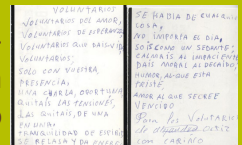 VOLUNTARIOS
VOLUNTARIOS DEL AMOR,
VOLUNTARIOS DE ESPERANZA
VOLUNTARIOS QUE
VOLUNTARIOS,
SOLO CON VUESTRA
PRESENCIA,
UNA CHARLA, OPORTUNA
QUITAIS LAS TENSIONES,
LAS QUITAIS, DE UNA
EN UNA,
TRANQUILIDAD DE
SE RELAJA Y DA
SE HABLA DE CUALQUIER
COSA,
NO IMPORTA EL DIA,
SOIS COMO UN SEDANTE,
CALMAIS AL IMPACIENTE
DAIS MORAL AL DECAIDO,
HUMOR, AL QUE ESTA
TRISTE,
AMOR AL QUE SE CREE
VENCIDO
Para los Voluntarios
de
con CARIÑO